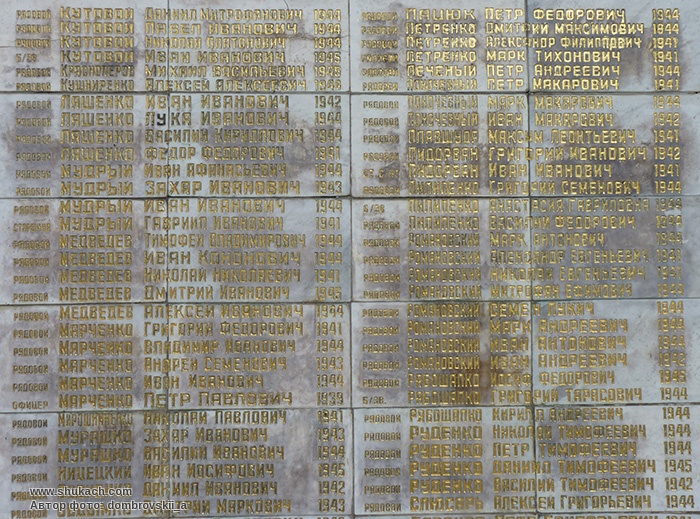 РЯДОВОЙ КУТОВОЙ ДАНИИЛ МИТРОФАНОВИЧ 1944
РЯДОВОЙ КУТОВОЙ ПАВЕЛ ИВАНОВИЧ 1944
РЯДОВОЙ КУТОВОЙ НИКОЛАЙ ПЛАТОНОВИЧ 1944
Б/ЗВ. КУТОВОЙ ИВАН ИВАНОВИЧ
РЯДОВОЙ КРАСНОПЕРОВ МИХАИЛ ВАСИЛЬЕВИЧ
РЯДОВОЙ КУШНИРЕНКО АЛЕКСЕЙ АЛЕКСЕЕВИЧ
РЯДОВОЙ ЛЯШЕНКО ИВАН ИВАНОВИЧ 1942
РЯДОВОЙ ЛЯШЕНКО ЛУКА ИВАНОВИЧ 1944
РЯДОВОЙ ЛЯШЕНКО ВАСИЛИЙ КИРИЛЛОВИЧ 1944
РЯДОВОЙ ЛЯШЕНКО ФЕДОР ФЕДОРОВИЧ 1941
РЯДОВОЙ МУДРЫЙ ИВАН АФАНАСЬЕВИЧ 1944
РЯДОВОЙ МУДРЫЙ ЗАХАР ИВАНОВИЧ 1943
РЯДОВОЙ МУДРЫЙ ИВАН ИВАНОВИЧ 1944
МУДРЫЙ ГАВРИИЛ ИВАНОВИЧ 1941
РЯДОВОЙ МЕДВЕДЕВ ТИМОФЕЙ ВЛАДИМИРОВИЧ 1944
РЯДОВОЙ МЕДВЕДЕВ ИВАН КОНОНОВИЧ 1944
РЯДОВОЙ МЕДВЕДЕВ НИКОЛАЙ НИКОЛАЕВИЧ 1941
РЯДОВОЙ МЕДВЕДЕВ ДМИТРИЙ ИВАНОВИЧ 1945
РЯДОВОЙ МЕДВЕДЕВ АЛЕКСЕЙ ИВАНОВИЧ 1944
РЯДОВОЙ МАРЧЕНКО ГРИГОРИЙ ФЕДОРОВИЧ 1941
РЯДОВОЙ МАРЧЕНКО ВЛАДИМИР ИВАНОВИЧ 1944
РЯДОВОЙ МАРЧЕНКО АНДРЕЙ СЕМЕНОВИЧ 1943
РЯДОВОЙ МАРЧЕНКО ИВАН ИВАНОВИЧ 1944
ОФИЦЕР МАРЧЕНКО ПЕТР ПАВЛОВИЧ 1939
РЯДОВОЙ НИКОЛАЙ ПАВЛОВИЧ 1941
РЯДОВОЙ МУРАШКО ЗАХАР ИВАНОВИЧ 1943
РЯДОВОЙ МУРАШКО ВАСИЛИЙ ИВАНОВИЧ 1944
РЯДОВОЙ НИЦЕЦКИЙ ИВАН ИОСИФОВИЧ 1945
РЯДОВОЙ ДАНИИЛ ИВАНОВИЧ 1942
МАРКОВИЧ 1943
РЯДОВОЙ ПАЦЮК ПЕТР ФЕДОРОВИЧ 1944
РЯДОВОЙ ПЕТРЕНКО ДМИТРИЙ МАКСИМОВИЧ 1944
РЯДОВОЙ ПЕТРЕНКО АЛЕКСАНДР ФИЛИППОВИЧ 1941
РЯДОВОЙ ПЕТРЕНКО МАРК ТИХОНОВИЧ 1941
РЯДОВОЙ ПЕЧЕНЫЙ ПЕТР АНДРЕЕВИЧ 1944
РЯДОВОЙ ПЕТР МАКАРОВИЧ 1941
РЯДОВОЙ МАРК МАКАРОВИЧ 1944
РЯДОВОЙ ИВАН МАКАРОВИЧ 1942
РЯДОВОЙ МАКСИМ ЛЕОНТЬЕВИЧ 1941
РЯДОВОЙ ПИДОРВАН ГРИГОРИЙ ИВАНОВИЧ 1942
ПИДОРВАН ИВАН ИВАНОВИЧ 1941
РЯДОВОЙ ПИЛИПЕНКО ГРИГОРИЙ СЕМЕНОВИЧ 1944
Б/ЗВ. ПИЛИПЕНКО АНАСТАСИЯ ГАВРИЛОВНА 1944
РЯДОВОЙ ПИЛИПЕНКО ВАСИЛИЙ ФЕДОРОВИЧ 1944
РЯДОВОЙ РОМАНОВСКИЙ МАРК АНТОНОВИЧ
РЯДОВОЙ РОМАНОВСКИЙ АЛЕКСАНДР ЕВГЕНЬЕВИЧ 1941
РЯДОВОЙ РОМАНОВСКИЙ НИКОЛАЙ ЕВГЕНЬЕВИЧ 1941
РЯДОВОЙ РОМАНОВСКИЙ МИТРОФАН ЕФИМОВИЧ
РЯДОВОЙ РОМАНОВСКИЙ СЕМЕН ЛУКИЧ 1944
РЯДОВОЙ РОМАНОВСКИЙ МАРК АНДРЕЕВИЧ
РЯДОВОЙ РОМАНОВСКИЙ ИВАН АНТОНОВИЧ
РЯДОВОЙ РОМАНОВСКИЙ ИВАН АНДРЕЕВИЧ
РЯДОВОЙ РУДОШАПКО ИОСИФ ФЕДОРОВИЧ
Б/ЗВ. ГРИГОРИЙ ТАРАСОВИЧ 1944
РЯДОВОЙ КИРИЛЛ АНДРЕЕВИЧ 1944
РЯДОВОЙ РУДЕНКО НИКОЛАЙ ТИМОФЕЕВИЧ 1944
РЯДОВОЙ РУДЕНКО ПЕТР ТИМОФЕЕВИЧ 1944
РЯДОВОЙ РУДЕНКО ДАНИИЛ ТИМОФЕЕВИЧ 1945
РЯДОВОЙ РУДЕНКО ВАСИЛИЙ ТИМОФЕЕВИЧ 1942
РЯДОВОЙ СЛЮСАРЬ АЛЕКСЕЙ ГРИГОРЬЕВИЧ 1944
www.shukach.com
Автор фото: dombrovskii_a